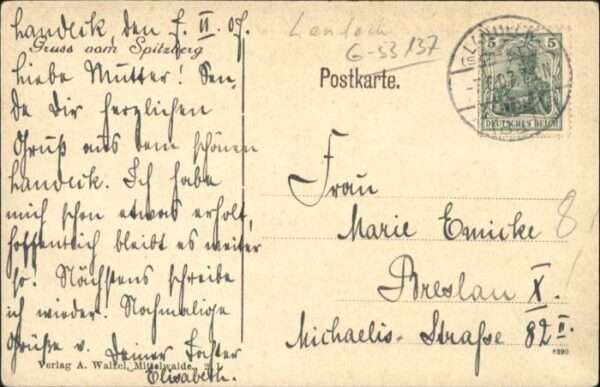 Landeck, den 7. II. 07.
Gruss vom Spitzberg
Liebe Mutter! Sen-
de Dir herzlichen
Gruß aus dem schönen
Landeck. Ich habe
mich schon etwas erholt,
hoffentlich bleibt es weiter
so! Nächstens schreibe
ich wieder. Nochmalige
Grüße v. Deiner
Elisabeth.
Verlag A. Walzel, Mittelwalde.
Landeck
G-33 137
Postkarte.
5 5
DEUTSCHES REICH
Frau
Marie Emicke
8
Breslau X.
Michaelis-Straße 82 II.